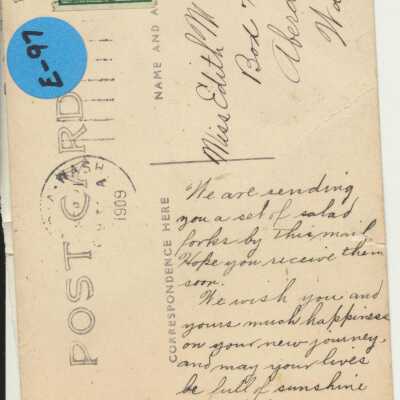 E-97
POST CARD
1909
NAME AND A
CORRESPONDENCE HERE
Miss Edith M
Box
Aber
Wa
We are sending
you a set of salad
forks by this mail.
Hope you receive them
soon.
We wish you and
yours much happiness
on your new journey,
and may your lives
be full of sunshine